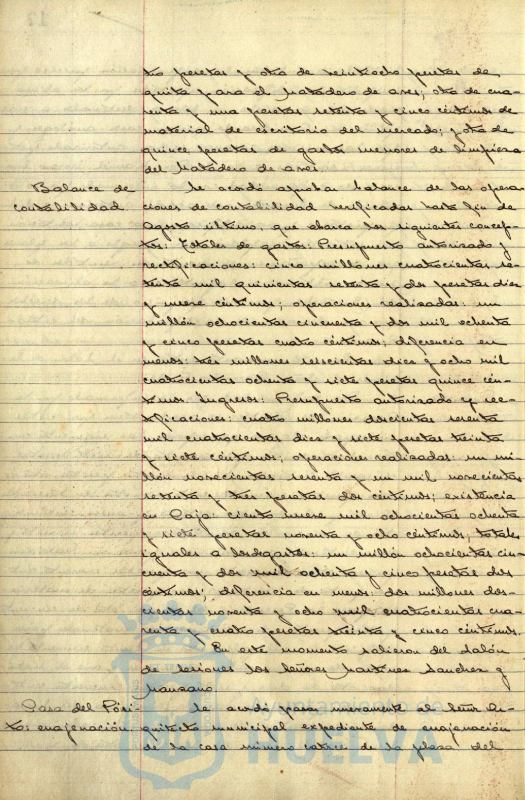 tro pesetas y otro de veintiocho pesetas de
quita y para el Matadero de aves; otra de cua-
renta y una pesetas setenta y cinco céntimos de
material de escritorio del mercado; y otra de
quince pesetas de gastos menores de limpieza
del Matadero de aves
Balance de contabilidad.
Se acordó aprobar balance de las opera-
ciones de contabilidad verificadas hasta fin de
Agosto último, que abarca los siguientes concep-
tos: Totales de gastos: Presupuesto autorizado y
rectificaciones: cinco millones cuatrocientas se-
tenta mil quinientas setenta y dos pesetas diez
y nueve céntimos; operaciones realizadas: un
millón ochocientas cincuenta y dos mil ochenta
y cinco pesetas cuatro céntimos; diferencia en
menos: tres millones seiscientas diez y ocho mil
cuatrocientas ochenta y siete pesetas quince cén-
timos. Ingresos: Presupuesto autorizado y rec-
tificaciones: cuatro millones doscientas sesenta
mil cuatrocientas diez y siete pesetas treinta
y siete céntimos; operaciones realizadas: un mi-
llón novecientas sesenta y un mil novecientas
setenta y tres pesetas dos céntimos; existencia
en Caja: ciento nueve mil ochocientas ochenta
y siete pesetas noventa y ocho céntimos; totales
iguales a los de gastos: un millón ochocientas cin-
cuenta y dos mil ochenta y cinco pesetas dos
céntimos; diferencia en menos: dos millones dos-
cientas noventa y ocho mil cuatrocientas cua-
renta y cuatro pesetas treinta y cinco céntimos.
En este momento salieron del Salón
de Sesiones los Señores Martínez Sanchez y
Manzano.
Casa del Pósi-
to: enajenación.
Se acordó pasar nuevamente al Señor Ar-
quitecto municipal expediente de enajenación
de la casa número catorce de la plaza del
HUELVA